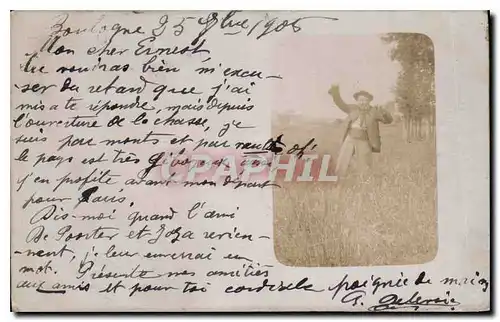 Boulogne 25 7bre 1905
Mon cher Ernest
Tu voudras bien m'excu-
ser du retard que j'ai
mis a te répondre, mais depuis
l'ouverture de la chasse, je
suis par monts et par vaux
le pays est très giboyeux
j'en profite avant mon départ
pour Paris.
Dis-moi quand l'ami
De Poorter et Joza revien-
nent, je leur enverrai un
mot. Présente mes amitiés
aux amis et pour toi cordiale poignée de main
CPArama